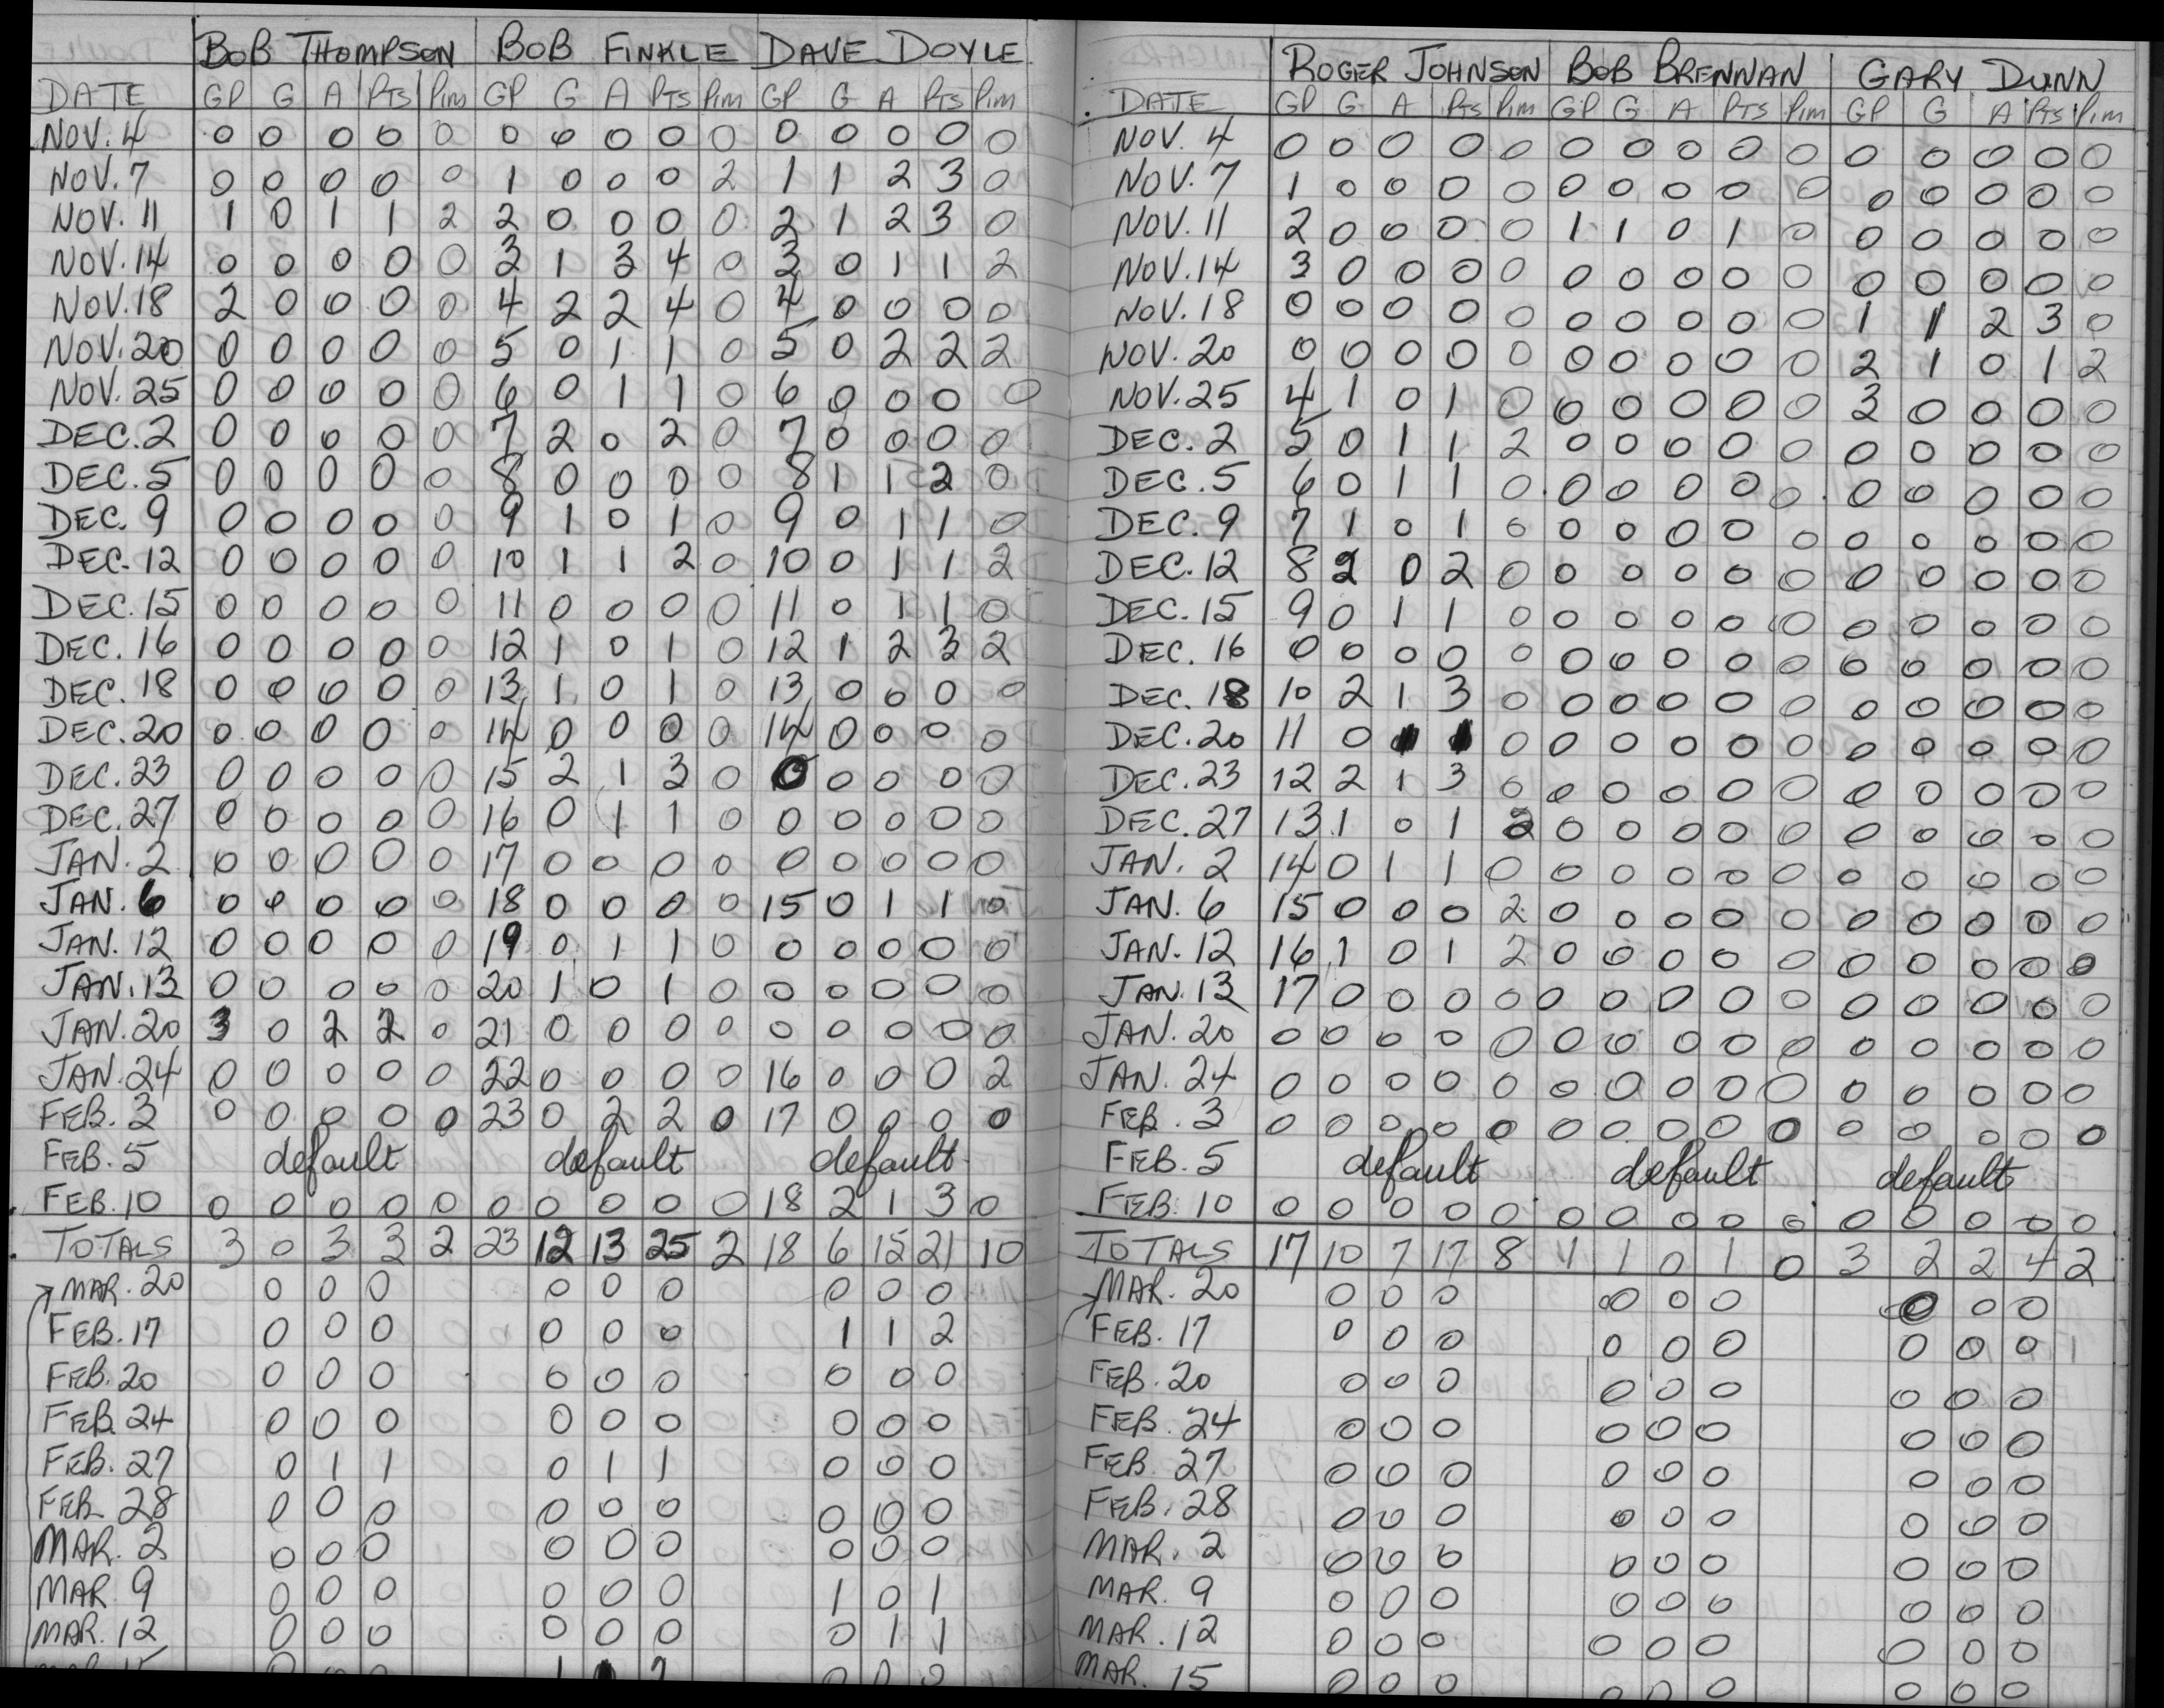 BOB THOMPSON BOB FINKLE DAVE DOYLE
DATE GP G A PTS PIM GP G A PTS PIM GP G A PTS PIM
NOV. 4 0 0 0 0 0 0 0 0 0 0 0 0 0 0 0
NOV. 7 0 0 0 0 0 1 0 0 0 2 1 1 2 3 0
NOV. 11 1 0 1 1 2 2 0 0 0 0 2 1 2 3 0
NOV. 14 0 0 0 0 0 3 1 3 4 0 3 0 1 1 2
NOV. 18 2 0 0 0 0 4 2 2 4 0 4 0 0 0 0
NOV. 20 0 0 0 0 0 5 0 1 1 0 5 0 2 2 2
NOV. 25 0 0 0 0 0 6 0 1 1 0 6 0 0 0 0
DEC. 2 0 0 0 0 0 7 2 0 2 0 7 0 0 0 0
DEC. 5 0 0 0 0 0 8 0 0 0 0 8 1 1 2 0
DEC. 9 0 0 0 0 0 9 1 0 1 0 9 0 1 1 0
DEC. 12 0 0 0 0 0 10 1 1 2 0 10 0 1 1 2
DEC. 15 0 0 0 0 0 11 0 0 0 0 11 0 1 1 0
DEC. 16 0 0 0 0 0 12 1 0 1 0 12 1 2 3 2
DEC. 18 0 0 0 0 0 13 1 0 1 0 13 0 0 0 0
DEC. 20 0 0 0 0 0 14 0 0 0 0 14 0 0 0 0
DEC. 23 0 0 0 0 0 15 2 1 3 0 0 0 0 0 0
DEC. 27 0 0 0 0 0 16 0 1 1 0 0 0 0 0 0
JAN. 2 0 0 0 0 0 17 0 0 0 0 0 0 0 0 0
JAN. 6 0 0 0 0 0 18 0 0 0 0 15 0 1 1 0
JAN. 12 0 0 0 0 0 19 0 1 1 0 0 0 0 0 0
JAN. 13 0 0 0 0 0 20 1 0 1 0 0 0 0 0 0
JAN. 20 3 0 2 2 0 21 0 0 0 0 0 0 0 0 0
JAN. 24 0 0 0 0 0 22 0 0 0 0 16 0 0 0 2
FEB. 3 0 0 0 0 0 23 0 2 2 0 17 0 0 0 0
FEB. 5 default default default
FEB. 10 0 0 0 0 0 0 0 0 0 0 18 2 1 3 0
TOTALS 3 0 3 3 2 23 12 13 25 2 18 6 15 21 10
MAR. 20 0 0 0 0 0 0 0 0 0
FEB. 17 0 0 0 0 0 0 1 1 2
FEB. 20 0 0 0 0 0 0 0 0 0
FEB. 24 0 0 0 0 0 0 0 0 0
FEB. 27 0 1 1 0 1 1 0 0 0
FEB. 28 0 0 0 0 0 0 0 0 0
MAR. 2 0 0 0 0 0 0 0 0 0
MAR. 9 0 0 0 0 0 0 1 0 1
MAR. 12 0 0 0 0 0 0 0 1 1
ROGER JOHNSON BOB BRENNAN GARY DUNN
DATE GP G A PTS PIM GP G A PTS PIM GP G A PTS PIM
NOV. 4 0 0 0 0 0 0 0 0 0 0 0 0 0 0 0
NOV. 7 1 0 0 0 0 0 0 0 0 0 0 0 0 0 0
NOV. 11 2 0 0 0 0 1 1 0 1 0 0 0 0 0 0
NOV. 14 3 0 0 0 0 0 0 0 0 0 0 0 0 0 0
NOV. 18 0 0 0 0 0 0 0 0 0 0 1 1 2 3 0
NOV. 20 0 0 0 0 0 0 0 0 0 0 2 1 0 1 2
NOV. 25 4 1 0 1 0 0 0 0 0 0 3 0 0 0 0
DEC. 2 5 0 1 1 2 0 0 0 0 0 0 0 0 0 0
DEC. 5 6 0 1 1 0 0 0 0 0 0 0 0 0 0 0
DEC. 9 7 1 0 1 0 0 0 0 0 0 0 0 0 0 0
DEC. 12 8 2 0 2 0 0 0 0 0 0 0 0 0 0 0
DEC. 15 9 0 1 1 0 0 0 0 0 0 0 0 0 0 0
DEC. 16 0 0 0 0 0 0 0 0 0 0 0 0 0 0 0
DEC. 18 10 2 1 3 0 0 0 0 0 0 0 0 0 0 0
DEC. 20 11 0 1 1 0 0 0 0 0 0 0 0 0 0 0
DEC. 23 12 2 1 3 0 0 0 0 0 0 0 0 0 0 0
DEC. 27 13 1 0 1 2 0 0 0 0 0 0 0 0 0 0
JAN. 2 14 0 1 1 0 0 0 0 0 0 0 0 0 0 0
JAN. 6 15 0 0 0 2 0 0 0 0 0 0 0 0 0 0
JAN. 12 16 1 0 1 2 0 0 0 0 0 0 0 0 0 0
JAN. 13 17 0 0 0 0 0 0 0 0 0 0 0 0 0 0
JAN. 20 0 0 0 0 0 0 0 0 0 0 0 0 0 0 0
JAN. 24 0 0 0 0 0 0 0 0 0 0 0 0 0 0 0
FEB. 3 0 0 0 0 0 0 0 0 0 0 0 0 0 0 0
FEB. 5 default default default
FEB. 10 0 0 0 0 0 0 0 0 0 0 0 0 0 0 0
TOTALS 17 10 7 17 8 1 1 0 1 0 3 2 2 4 2
MAR. 20 0 0 0 0 0 0 0 0 0
FEB. 17 0 0 0 0 0 0 0 0 0
FEB. 20 0 0 0 0 0 0 0 0 0
FEB. 24 0 0 0 0 0 0 0 0 0
FEB. 27 0 0 0 0 0 0 0 0 0
FEB. 28 0 0 0 0 0 0 0 0 0
MAR. 2 0 0 0 0 0 0 0 0 0
MAR. 9 0 0 0 0 0 0 0 0 0
MAR. 12 0 0 0 0 0 0 0 0 0
MAR. 15 0 0 0 0 0 0 0 0 0